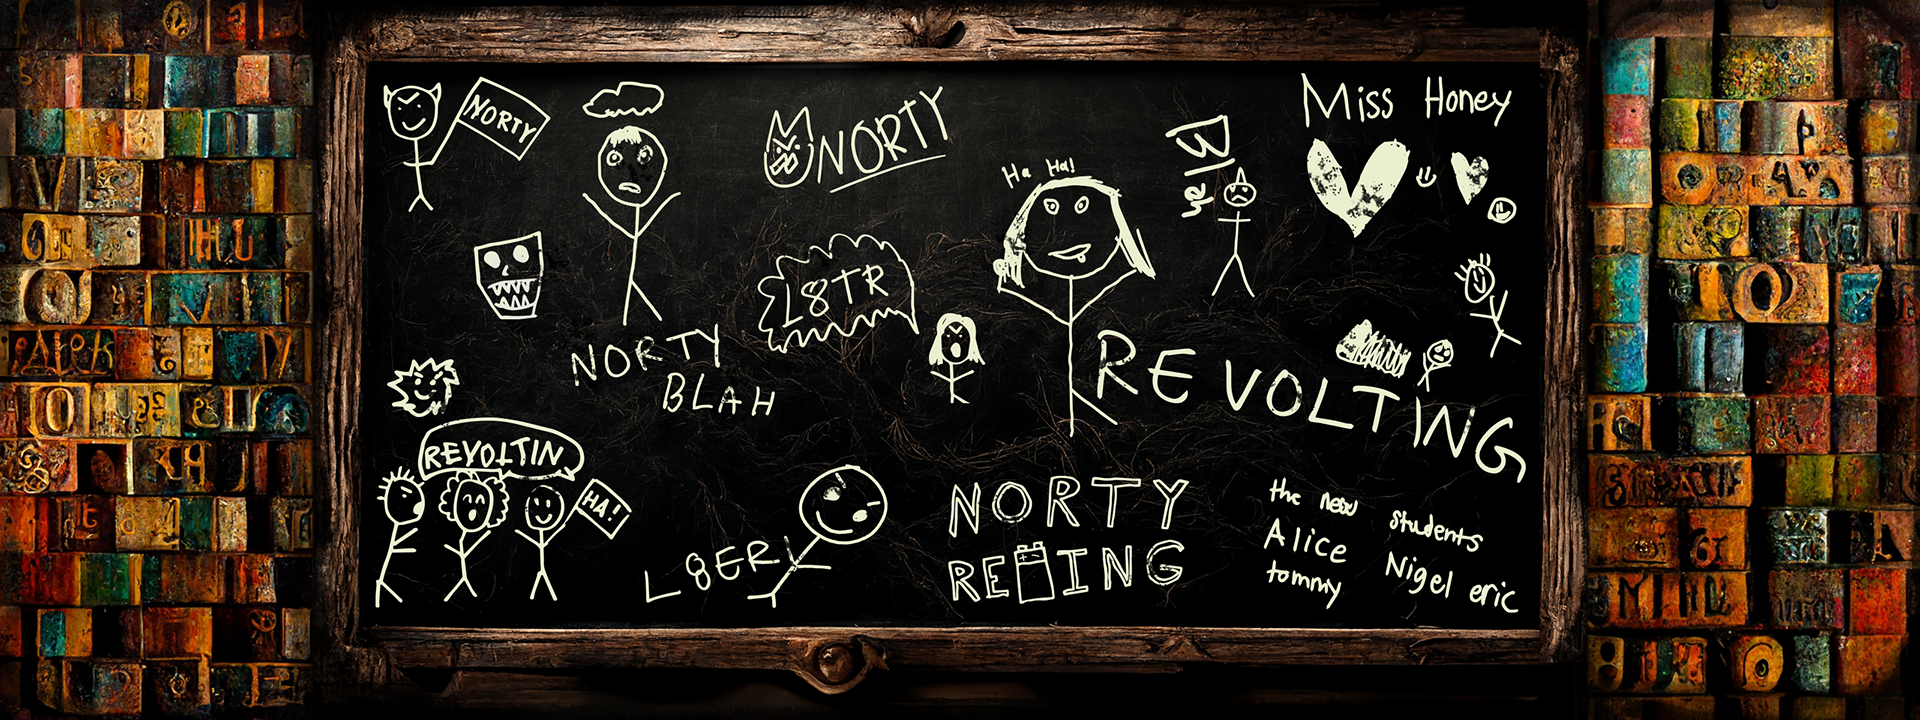 NORTY
NORTY
Ha Ha!
Blah
Miss Honey
L8TR
NORTY
BLAH
REVOLTING
REVOLTIN
HA!
L8ER
NORTY
RE ING
the new students
Alice Nigel eric
tommy